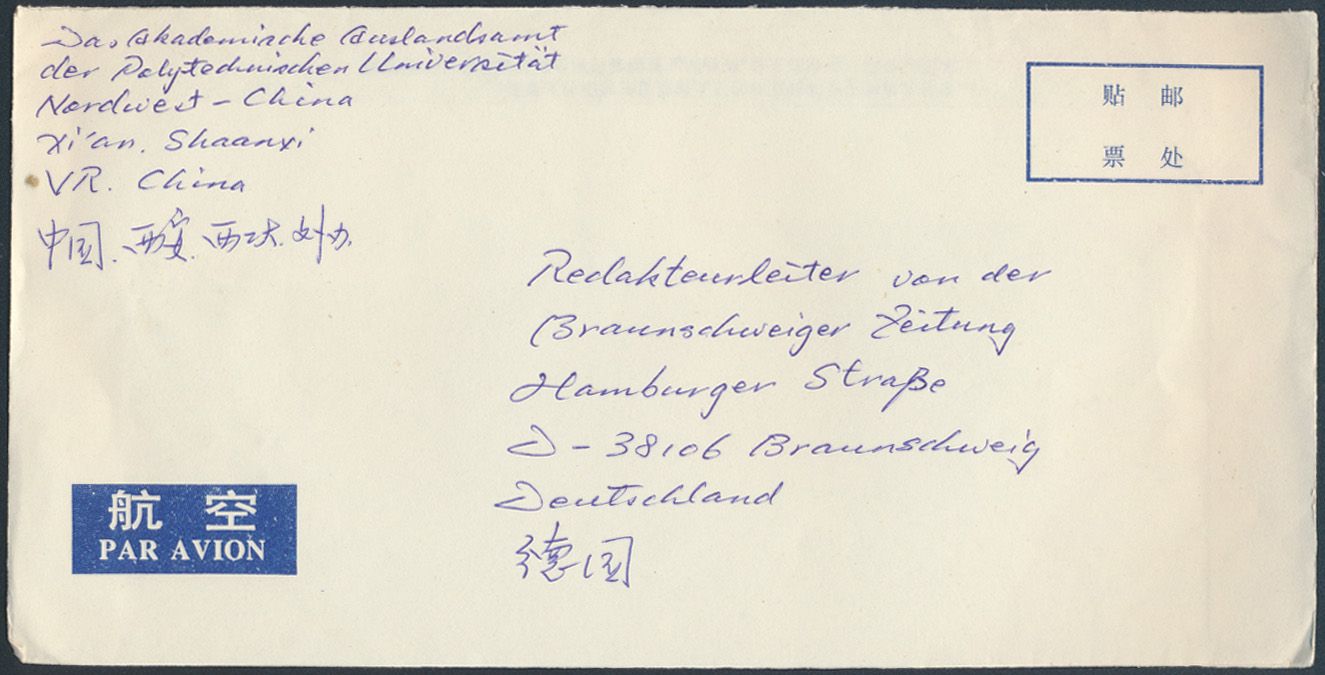 Das Akademische Auslandsamt
der Polytechnischen Universität
Nordwest-China
Xi'an. Shaanxi
VR. China
中国.西安.西工大.外办.
贴 邮
票 处
Redakteurleiter von der
Braunschweiger Zeitung
Hamburger Straße
D-38106 Braunschweig
Deutschland
德国
航 空
PAR AVION